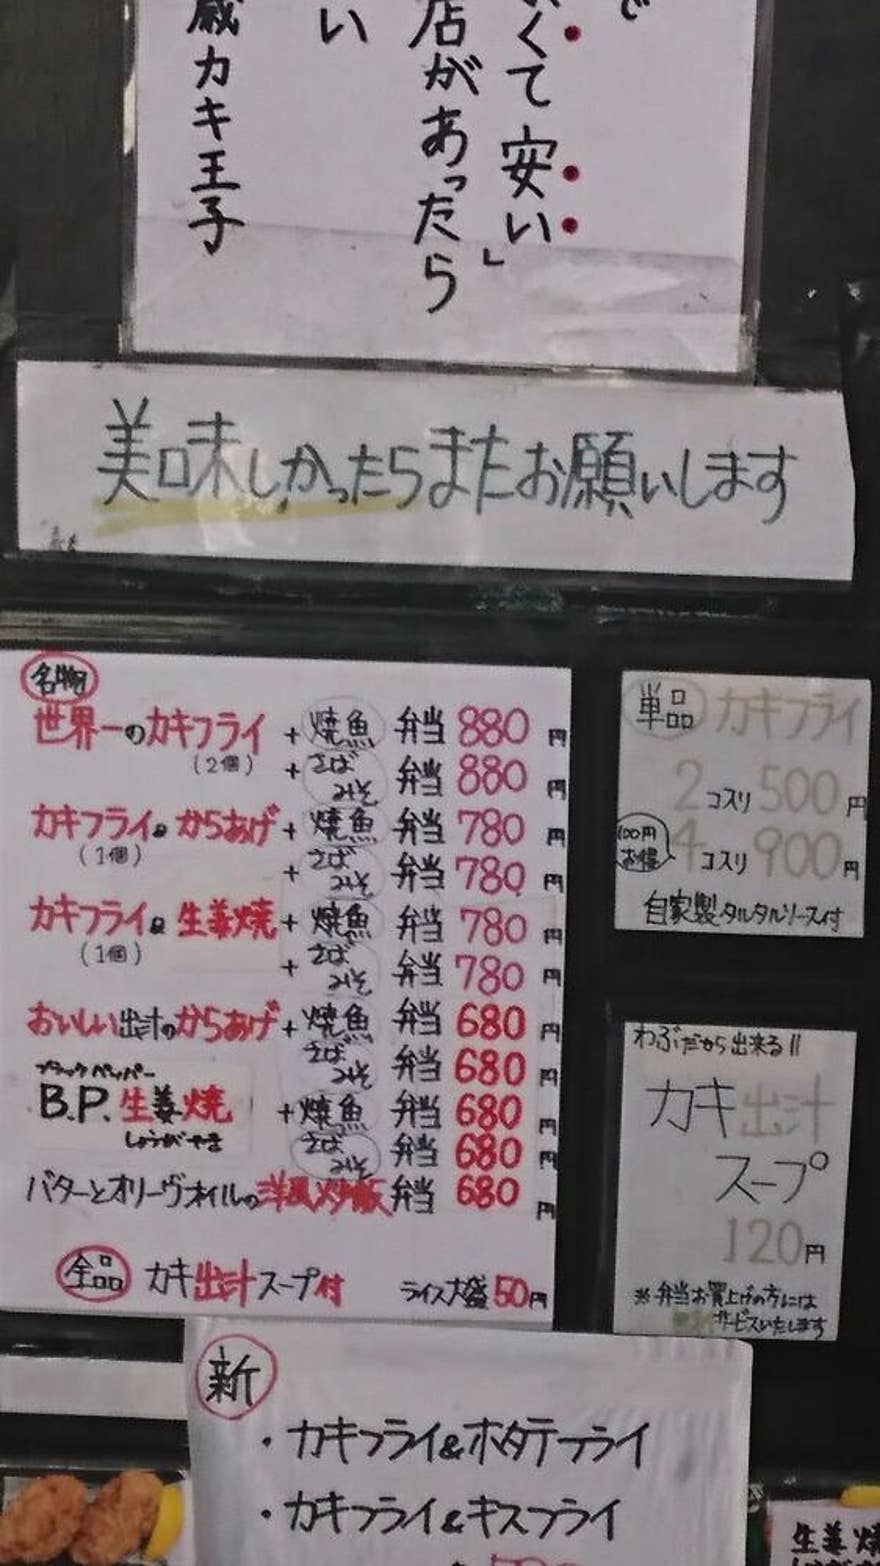 で
くて安い」
店があったら
い
蔵カキ王子
美味しかったらまたお願いします
名物
世界一のカキフライ + 焼魚 弁当 880円
(2個) + さばみそ 弁当 880円
カキフライ&からあげ + 焼魚 弁当 780円
(1個) + さばみそ 弁当 780円
カキフライ& 生姜焼 + 焼魚 弁当 780円
(1個) + さばみそ 弁当 780円
おいしい出汁のからあげ + 焼魚 弁当 680円
さばみそ 弁当 680円
ブラックペッパー
B.P.生姜焼 + 焼魚 弁当 680円
しょうがやき さばみそ 弁当 680円
バターとオリーヴオイルの洋風炒飯弁当 680円
全品 カキ出汁スープ付 ライス大盛50円
単品 カキフライ
2コスリ 500円
100円お得 4コスリ 900円
自家製タルタルソース付
わぶだから出来る!!
カキ出汁
スープ
120円
※弁当お買上げの方には
サービスいたします
新
・カキフライ&ホタテフライ
・カキフライ&キスフライ
生姜焼